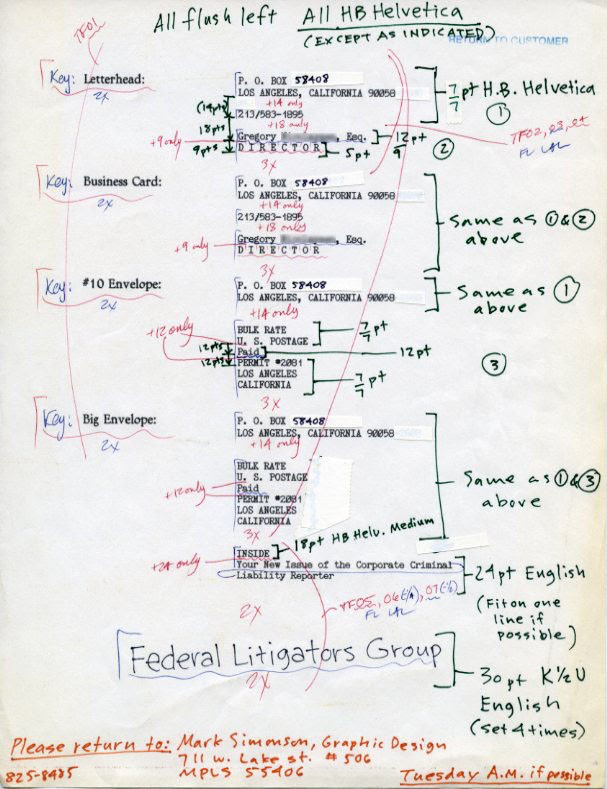 All flush left All HB Helvetica
(EXCEPT AS INDICATED)
RETURN TO CUSTOMER
TF01
Key: Letterhead:
2x
P. O. BOX 58408
LOS ANGELES, CALIFORNIA 90058
7/7 pt H.B. Helvetica
①
(14pts)
+14 only
213/583-1895
18pts
+18 only
+9 only
9pts
Gregory , Esq.
12/9 pt
②
DIRECTOR
5pt
TF02, 03, 04
FL LAL
3x
Key: Business Card:
2x
P. O. BOX 58408
LOS ANGELES, CALIFORNIA 90058
+14 only
213/583-1895
+18 only
+9 only
Gregory , Esq.
DIRECTOR
Same as ① & ②
above
3x
Key: #10 Envelope:
2x
P. O. BOX 58408
LOS ANGELES, CALIFORNIA 90058
Same as ①
above
+14 only
+12 only
BULK RATE
U. S. POSTAGE
7/7 pt
12pts
Paid
12pt
12pts
PERMIT #2081
LOS ANGELES
CALIFORNIA
7/7 pt
③
3x
Key: Big Envelope:
2x
P. O. BOX 58408
LOS ANGELES, CALIFORNIA 90058
+14 only
BULK RATE
U. S. POSTAGE
+12 only
Paid
PERMIT #2081
LOS ANGELES
CALIFORNIA
Same as ① & ③
above
3x
18pt HB Helv. Medium
+24 only
INSIDE
Your New Issue of the Corporate Criminal
Liability Reporter
24pt English
(Fit on one
line if
possible)
2x
TF05, 06, 07
FL LAL
Federal Litigators Group
2x
30pt K½U
English
(set 4 times)
Please return to: Mark Simonson, Graphic Design
711 W. Lake St. #506
825-8485 MPLS 55406
Tuesday A.M. if possible